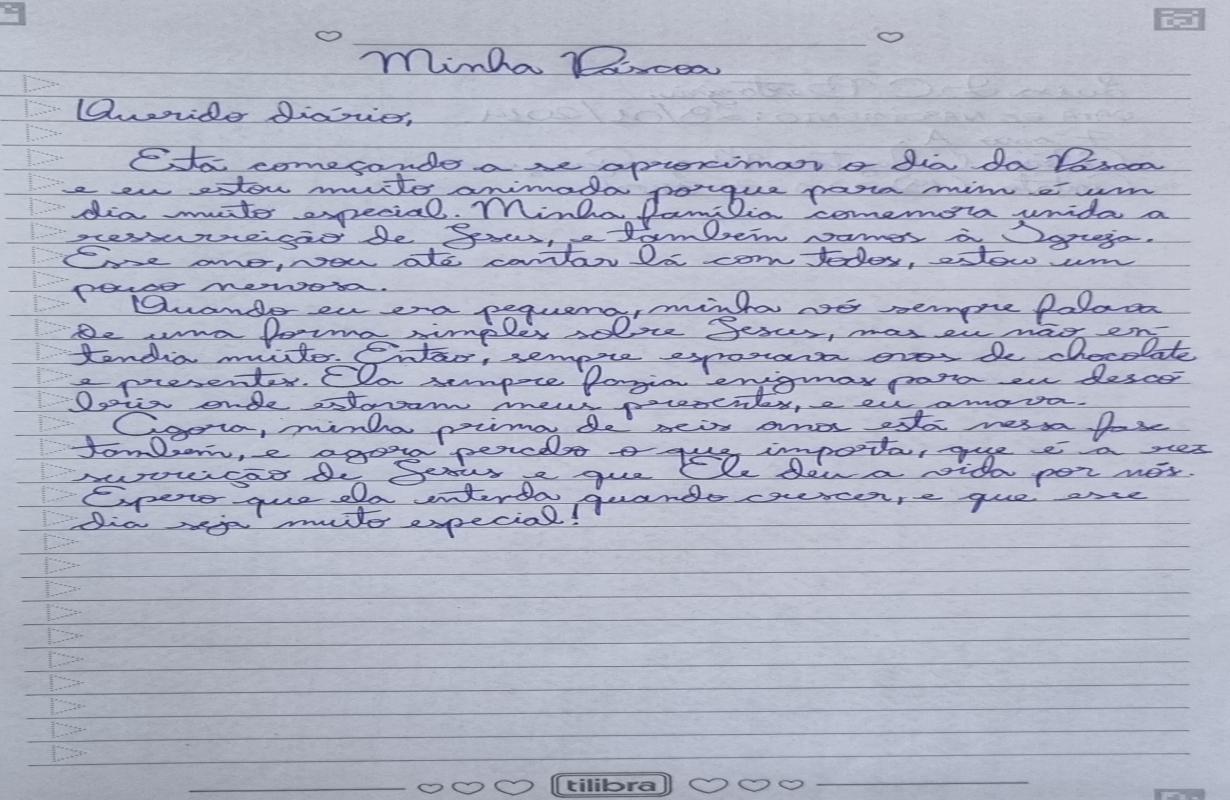 Minha Páscoa
Querido diário,
Está começando a se aproximar o dia da Páscoa
e eu estou muito animada porque para mim é um
dia muito especial. Minha família comemora unida a
ressurreição de Jesus, e também vamos à Igreja.
Esse ano, vou até cantar lá com todos, estou um
pouco nervosa.
Quando eu era pequena, minha vó sempre falava
de uma forma simples sobre Jesus, mas eu não en-
tendia muito. Então, sempre esparava ovos de chocolate
e presentes. Ela sempre fazia enigmas para eu desco
brir onde estavam meus presentes, e eu amava.
Agora, minha prima de seis anos está nessa fase
também, e agora percebo o que importa, que é a res
surreição de Jesus e que Ele deu a vida por nós.
Espero que ela entenda quando crescer, e que esse
dia seja muito especial!
tilibra